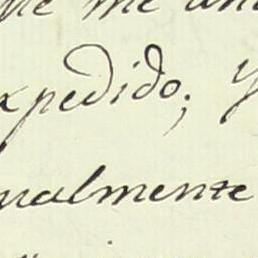 me me
xpedido; y
nalmente